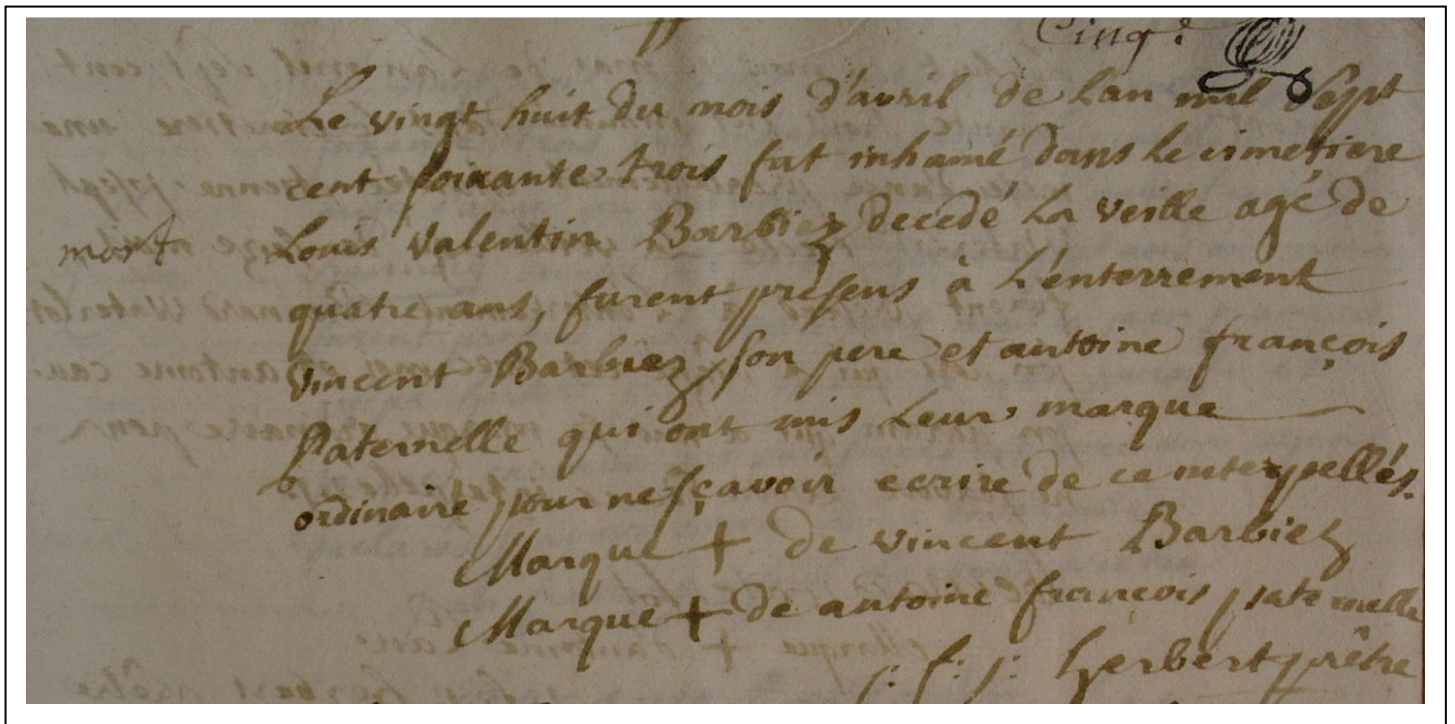 Cinq.
Le vingt huit du mois d'avril de Lan mil Sept
cent soixante trois fut inhumé dans le cimetiere
mort Louis Valentin Barbiez decedé La veille agé de
quatre ans, furent presens à L'enterrement
vincent Barbiez son pere et antoine françois
Paternelle qui ont mis Leur marque
ordinaire pour ne sçavoir ecrire de ce interpellés.
Marque + de vincent Barbiez
Marque + de antoine francois paternelle
j: f: j: herbert prêtre